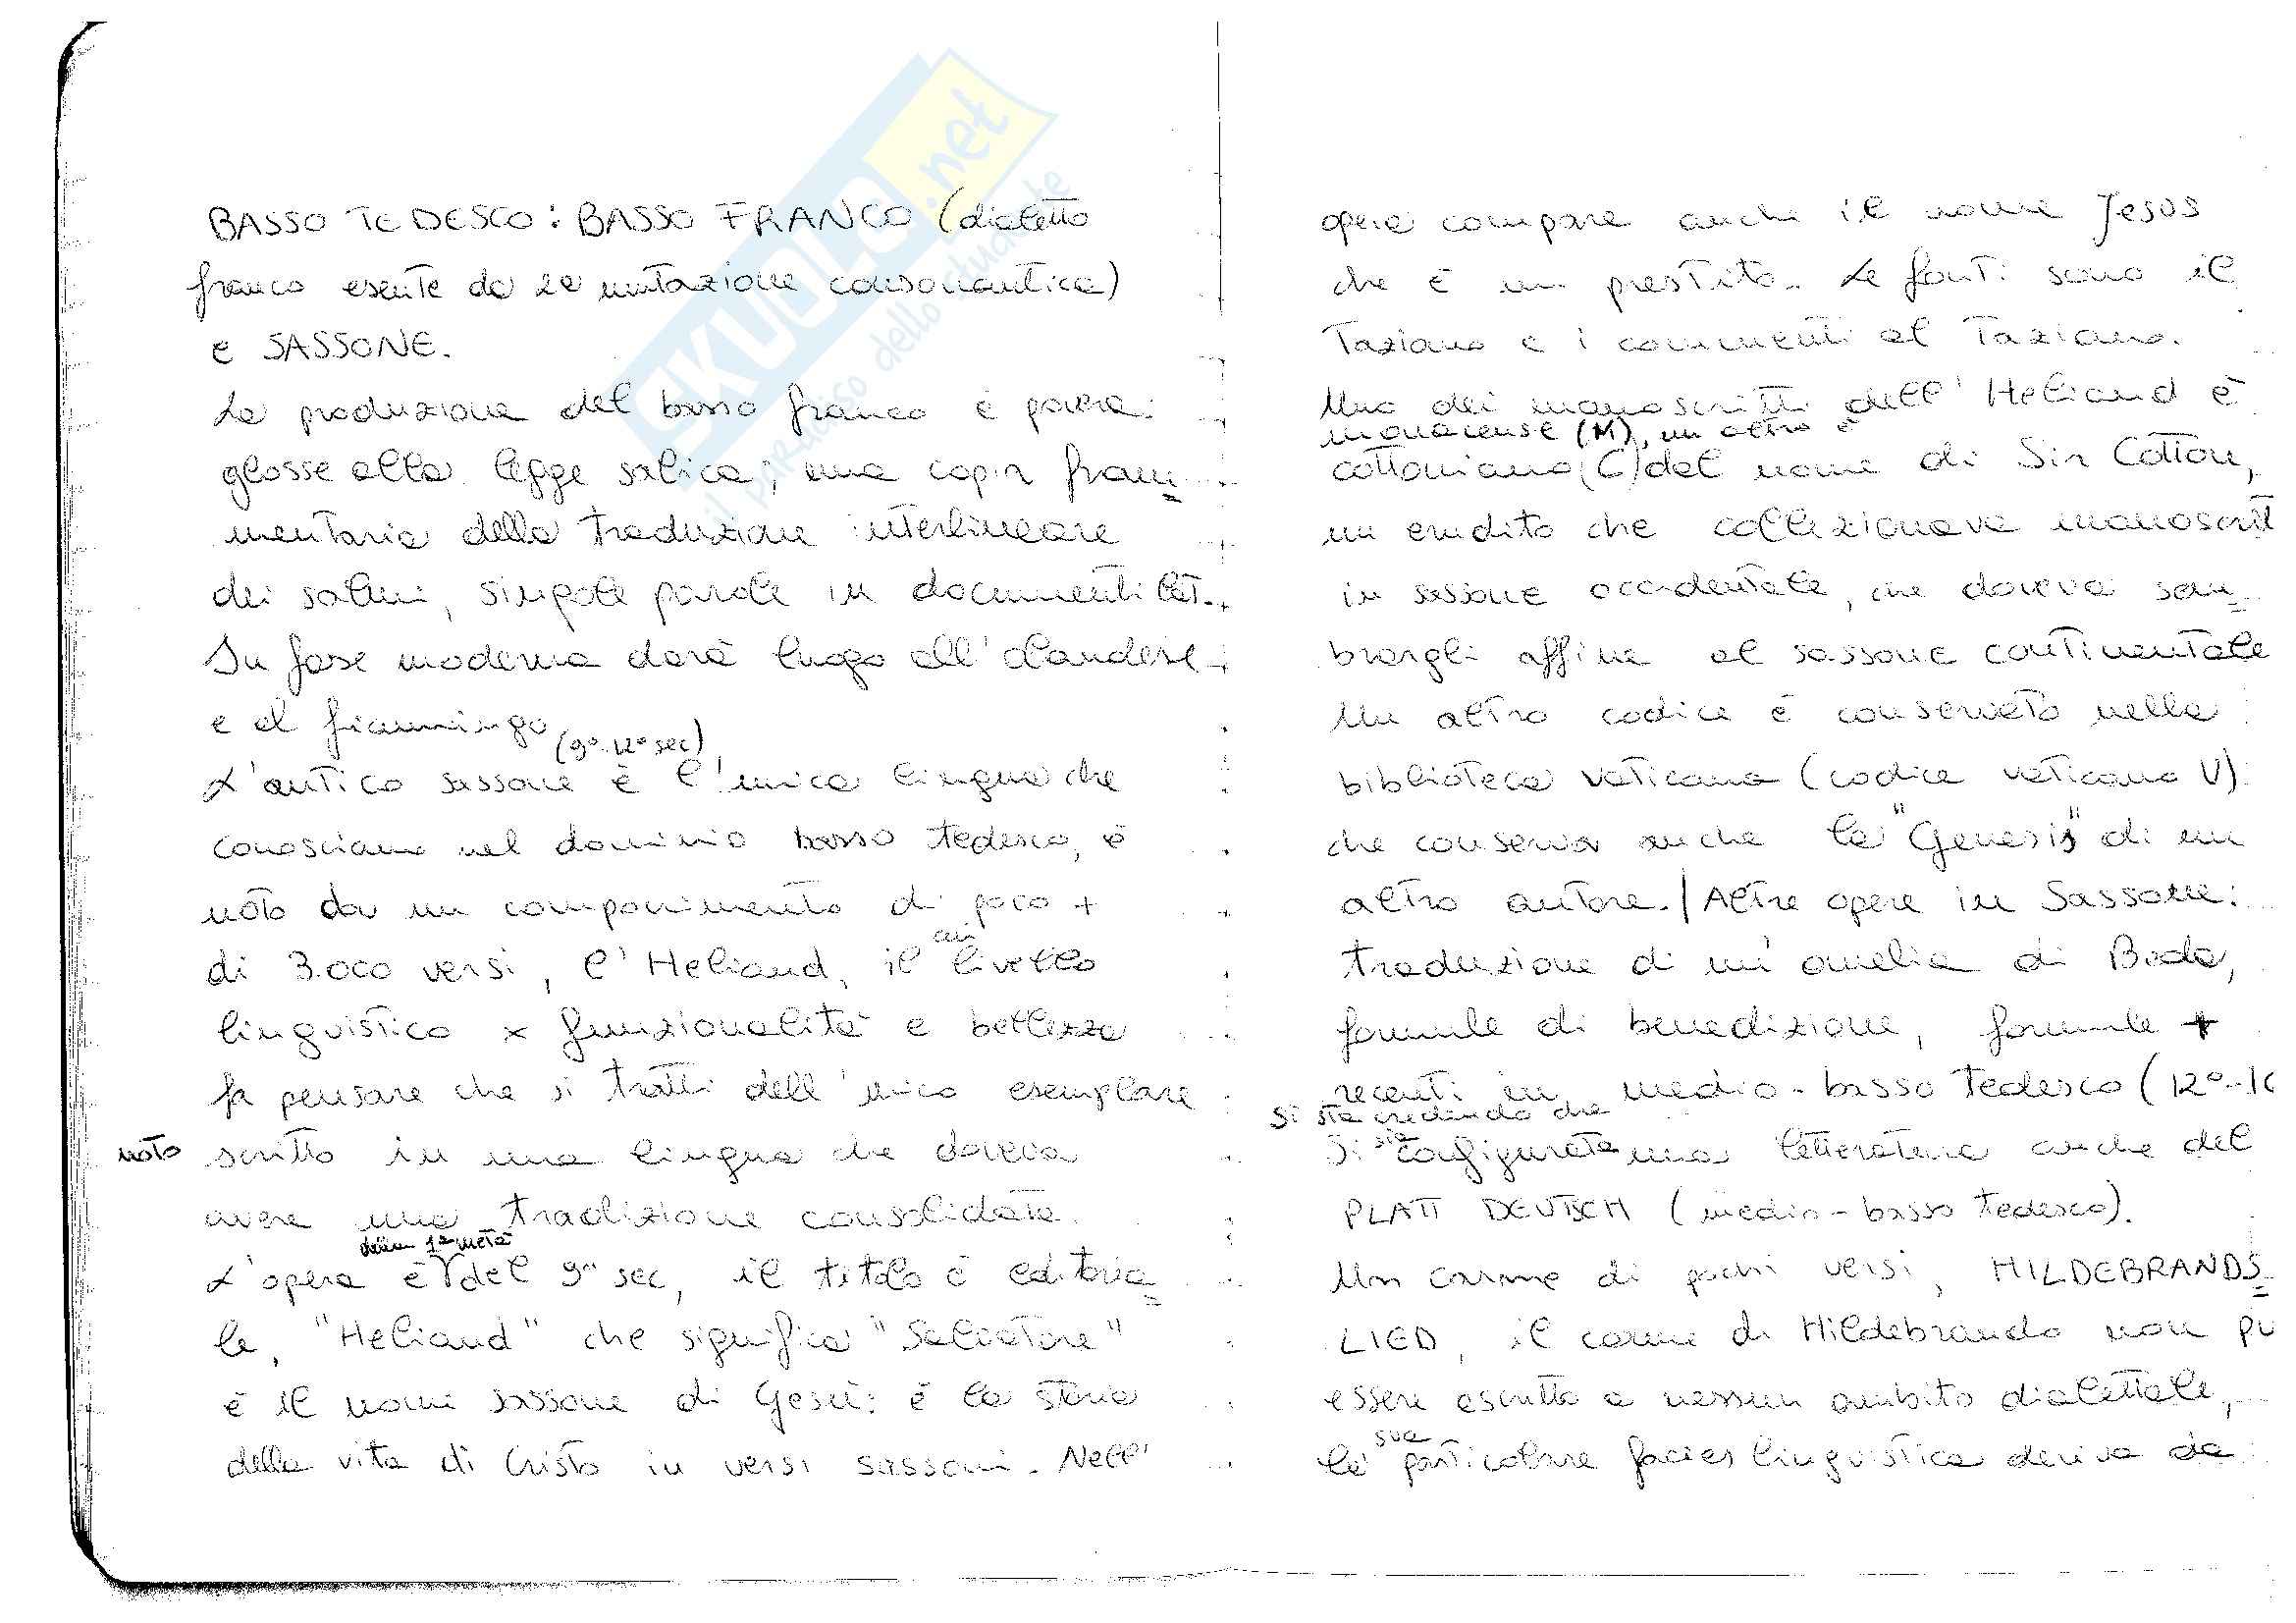 BASSO TEDESCO: BASSO FRANCO (dialetto
franco esente da la mutazione consonantica)
e SASSONE.
La produzione del basso franco è povera:
glosse alla legge salica; una copia fram=
mentaria della traduzione interlineare
dei salmi, singole parole in documenti lat.
In fase moderna darà luogo all'olandese
e al fiammingo
(9°-12° sec)
L'antico sassone è l'unica lingua che
conosciamo nel dominio basso tedesco, è
noto da un componimento di poco +
di 3.000 versi, l'Heliand, il cui livello
linguistico x funzionalità e bellezza
fa pensare che si tratti dell'unico esemplare
noto scritto in una lingua che doveva
avere una tradizione consolidata.
della 1ª metà
L'opera è del 9° sec, il titolo è editoria=
le, "Heliand" che significa "Salvatore"
è il nome sassone di Gesù: è la storia
della vita di Cristo in versi sassoni. Nell'
opera compare anche il nome Jesus
che è un prestito. Le fonti sono il
Taziano e i commenti al Taziano.
Uno dei manoscritti dell'Heliand è
monacense (M), un altro è
cottoniano (C) dal nome di Sir Cotton,
un erudito che collezionava manoscrit
in sassone occidentale, che doveva sem=
brargli affine al sassone continentale
Un altro codice è conservato nella
biblioteca vaticana (codice vaticano V)
che conserva anche la "Genesis" di un
altro autore. / Altre opere in Sassone:
traduzione di un'omelia di Beda,
formule di benedizione, formule +
recenti in medio-basso tedesco (12°-1
Si sta credendo che
si sia configurata una letteratura anche del
PLATT DEUTSCH (medio-basso tedesco).
Un carme di pochi versi, HILDEBRANDS=
LIED, il carme di Hildebrando non pu
essere ascritto a nessun ambito dialettale,
la sua particolare facies linguistica deriva da
SKUOLA.net
il paradiso dello studente